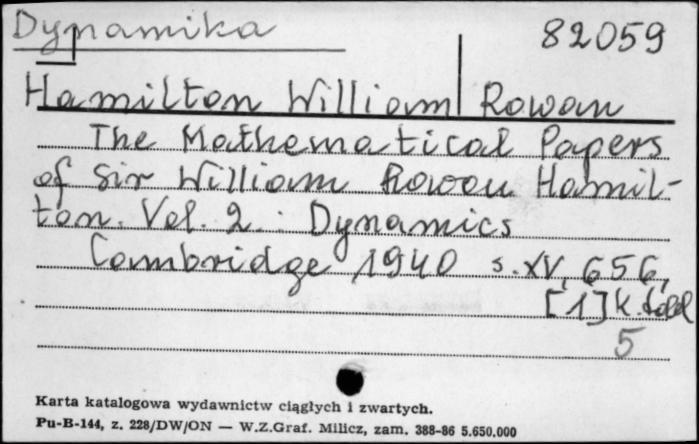 Dynamika
82059
Hamilton William Rowan
The Mathematical Papers
of Sir William Rowan Hamil-
ton. Vol. 2. : Dynamics
Cambridge 1940 s. XV, 656,
[1] k. tabl
5
Karta katalogowa wydawnictw ciągłych i zwartych.
Pu-B-144, z. 228/DW/ON — W.Z.Graf. Milicz, zam. 388-86 5.650.000